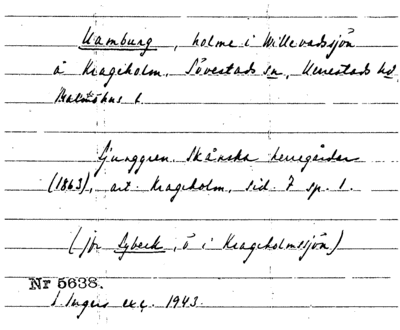 Hamburg, holme i Willevadssjön
å Krageholm, Sövestads sn, Herrestads hd
Malmöhus l.
Ljunggren. Skånska herregårdar
(1863), art. Krageholm, sid. 7 sp. 1.
(jfr Lybeck, ö i Krageholmssjön)
Nr 5638.
S. Ingers exc. 1943.